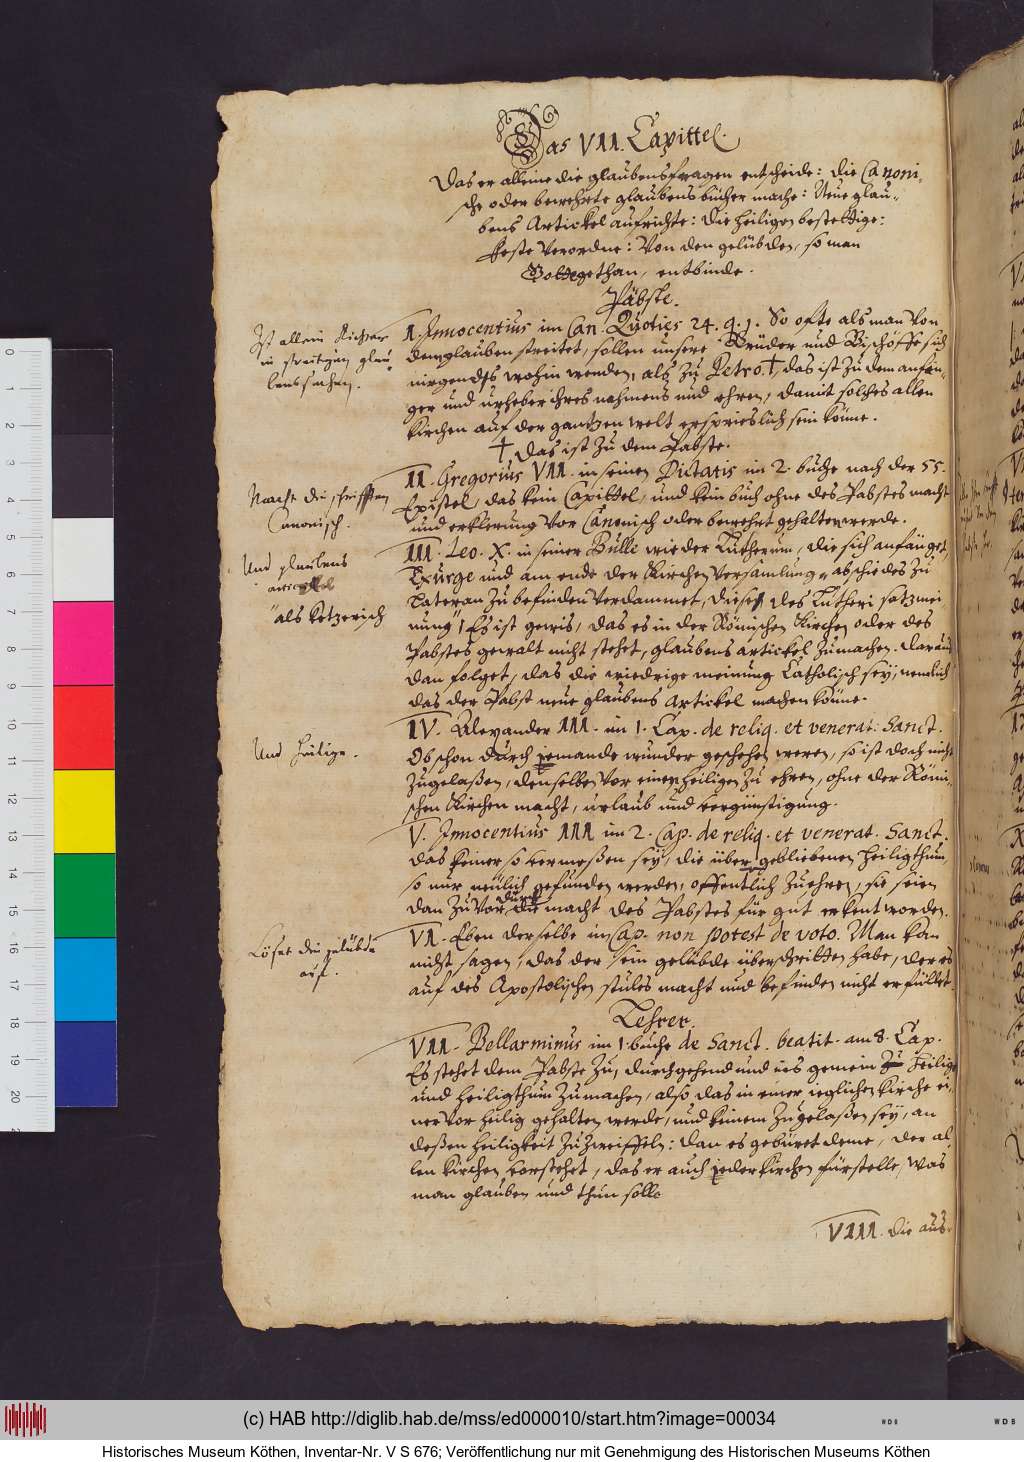 Das VII. Capittel.
Das er alleine die glaubensfragen entscheide: die Canoni-
sche oder bewehrte glaubensbücher mache: Neue glau-
bens Artickel aufrichte: die heiligen bestettige:
feste verordne: Von den gelübden, so man
Gott gethan, entbinde.
Päbste.
Ist allein Richter
in streitigen glau-
benssachen.
I. Innocentius im Can. Quoties 24. q. 1. So ofte als man von
dem glauben streitet, sollen unsere Brüder und Bischöffe sich
nirgends wohin wenden, als zu Petro †, das ist zu dem anfän-
ger und urheber ihres nahmens und ehren, damit solches allen
Kirchen auf der gantzen welt ersprieslich sein könne.
†. Das ist zu dem Pabste.
Macht die schrifften
Canonisch.
II. Gregorius VII. in seinen Dictatis im 2. buche nach der 55.
Epistel, das kein Capittel, und kein buch ohne des Pabstes macht
und erklerung vor Canonisch oder bewehrt gehalten werde.
Und glaubens
artickel
"als ketzerisch
III. Leo. X. in seiner Bulle wieder Lutherum, die sich anfänget,
Exurge und am ende der Kirchen versamlung abschiedes zu
Lateran zu befinden verdammet, diese des Lutheri satzmei-
nung "/ Es ist gewis, das es in der Römischen Kirchen oder des
Pabstes gewalt nicht stehet, glaubens artickel zu machen. daraus
dan folget, das die wiedrige meinung Catholisch sey, nemlich
das der Pabst neue glaubens Artickel machen könne.
Und heilige.
IV. Alexander III. im 1. Cap. de reliq. et venerat: Sanct.
Ob schon durch jemande wunder geschehen weren, so ist doch nicht
zugelaßen, denselben vor einen heiligen zu ehren, ohne der Römi-
schen Kirchen macht, urlaub und vergünstigung.
V. Innocentius III im 2. Cap. de reliq. et venerat. Sanct.
das keiner so vermeßen sey, die übergebliebenen heiligthum,
so nur neülich gefunden werden, offentlich zu ehren, sie seien
dan zuvor durch die macht des Pabstes für gut erkent worden.
Löset die gelübde
auf.
VI. Eben derselbe im Cap. non potest de voto. Man kan
nicht sagen, das der sein gelübde überschritten habe, der es
auf des Apostolischen stules macht und befinden nicht erfüllet.
Lehrer.
VII. Bellarminus im 1. buche de Sanct. beatit. am 8. Cap.
Es stehet dem Pabste zu, durchgehend und ins gemein zu heilige
und heiligthum zu machen, also das in einer ieglichen kirche ei-
ner vor heilig gehalten werde, und keinem zugelaßen sey, an
deßen heiligkeit zu zweiffeln: dan es gebüret deme, der al-
len kirchen vorstehet, das er auch jeder kirchen fürstelle, was
man glauben und thun solle
VIII. die aus-
(c) HAB http://diglib.hab.de/mss/ed000010/start.htm?image=00034
Historisches Museum Köthen, Inventar-Nr. V S 676; Veröffentlichung nur mit Genehmigung des Historischen Museums Köthen